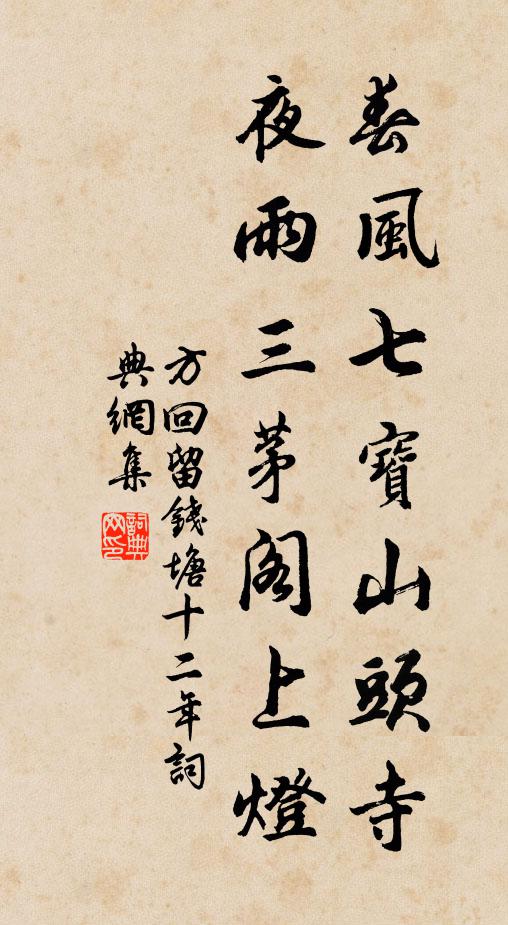 春風七寶山頭寺
夜雨三茅閣上燈
方回留錢塘十二年詞
典網集
詞典網印